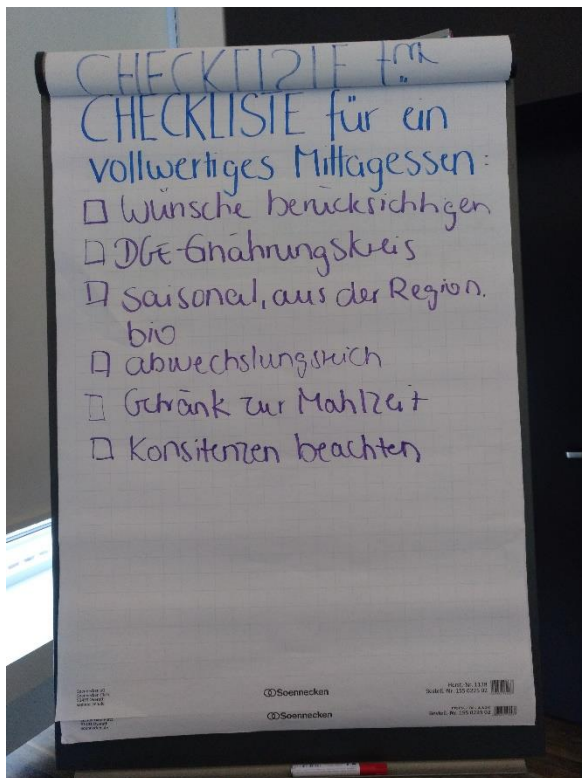 CHECKLISTE für
CHECKLISTE für ein
vollwertiges Mittagessen:
Wünsche berücksichtigen
DGE-Ernährungskreis
saisonal, aus der Region,
bio
abwechslungsreich
Getränk zur Mahlzeit
Konsitenzen beachten
Soennecken
Soennecken